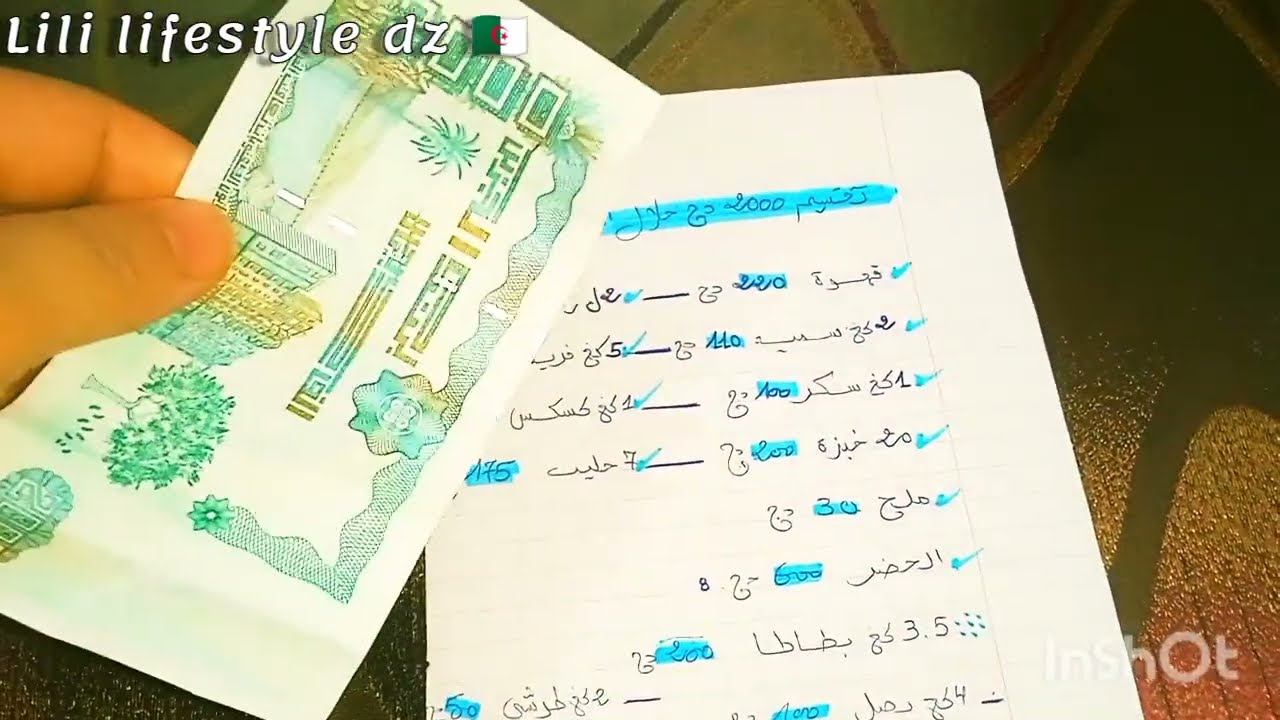 Lili lifestyle dz
تقسيم 2000 دج خلال
قهوة 220 دج — 2ل
2كغ سميد 110 دج — 5كغ فرينة
1كغ سكر 100 دج — 1كغ كسكس
20 خبزة 200 دج — 7 حليب 175
ملح 30 دج
الخضر 600 دج . 8
3.5 كغ بطاطا 200 دج
4كغ بصل 100 دج — 2كغ طرشي 50
InShOt